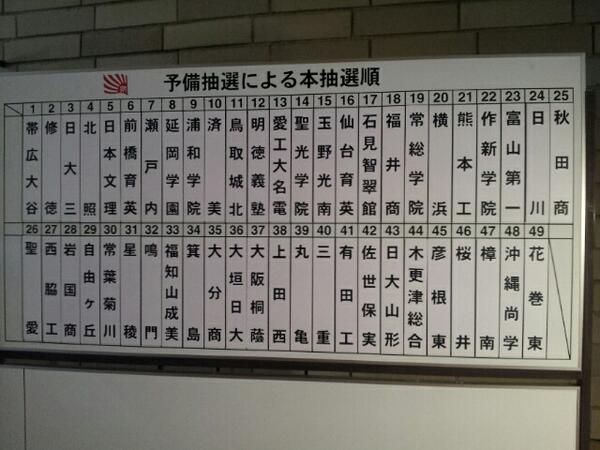 予備抽選による本抽選順
1 2 3 4 5 6 7 8 9 10 11 12 13 14 15 16 17 18 19 20 21 22 23 24 25
帯広大谷 修徳 日大三 北照 日本文理 前橋育英 瀬戸内 延岡学園 浦和学院 済美 鳥取城北 明徳義塾 愛工大名電 聖光学院 玉野光南 仙台育英 石見智翠館 福井商 常総学院 横浜 熊本工 作新学院 富山第一 日川 秋田商
26 27 28 29 30 31 32 33 34 35 36 37 38 39 40 41 42 43 44 45 46 47 48 49
聖愛 西脇工 岩国商 自由ヶ丘 常葉菊川 星稜 鳴門 福知山成美 箕島 大分商 大垣日大 大阪桐蔭 上田西 丸亀 三重 有田工 佐世保実 日大山形 木更津総合 彦根東 桜井 樟南 沖縄尚学 花巻東